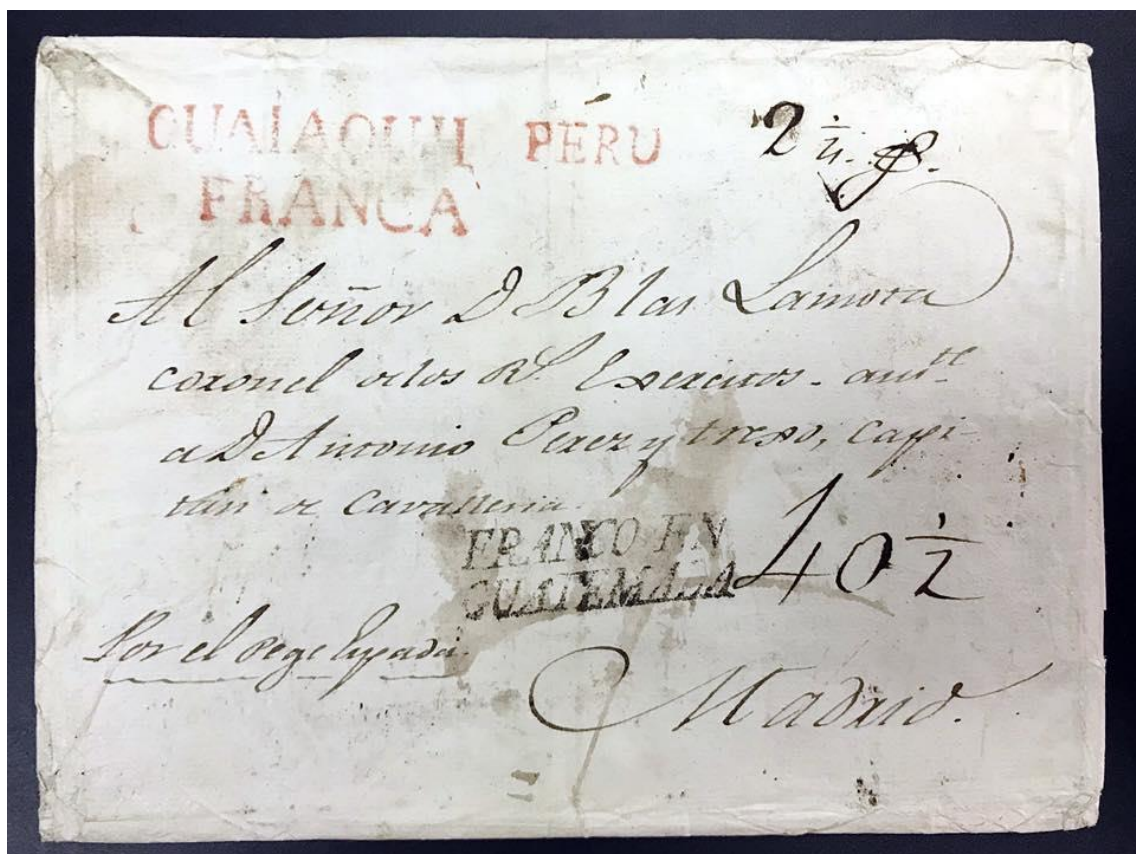 GUAIAQUIL PERU
FRANCA
2 ½
Al Señor D Blas Lamota
coronel de los Rs. Exercitos - aunte
a D Antonio Perez y trexo, capi-
tan de Cavalleria.
FRANCO EN
GUATEMALA
40 ½
Por el Pege Espada
Madrid.